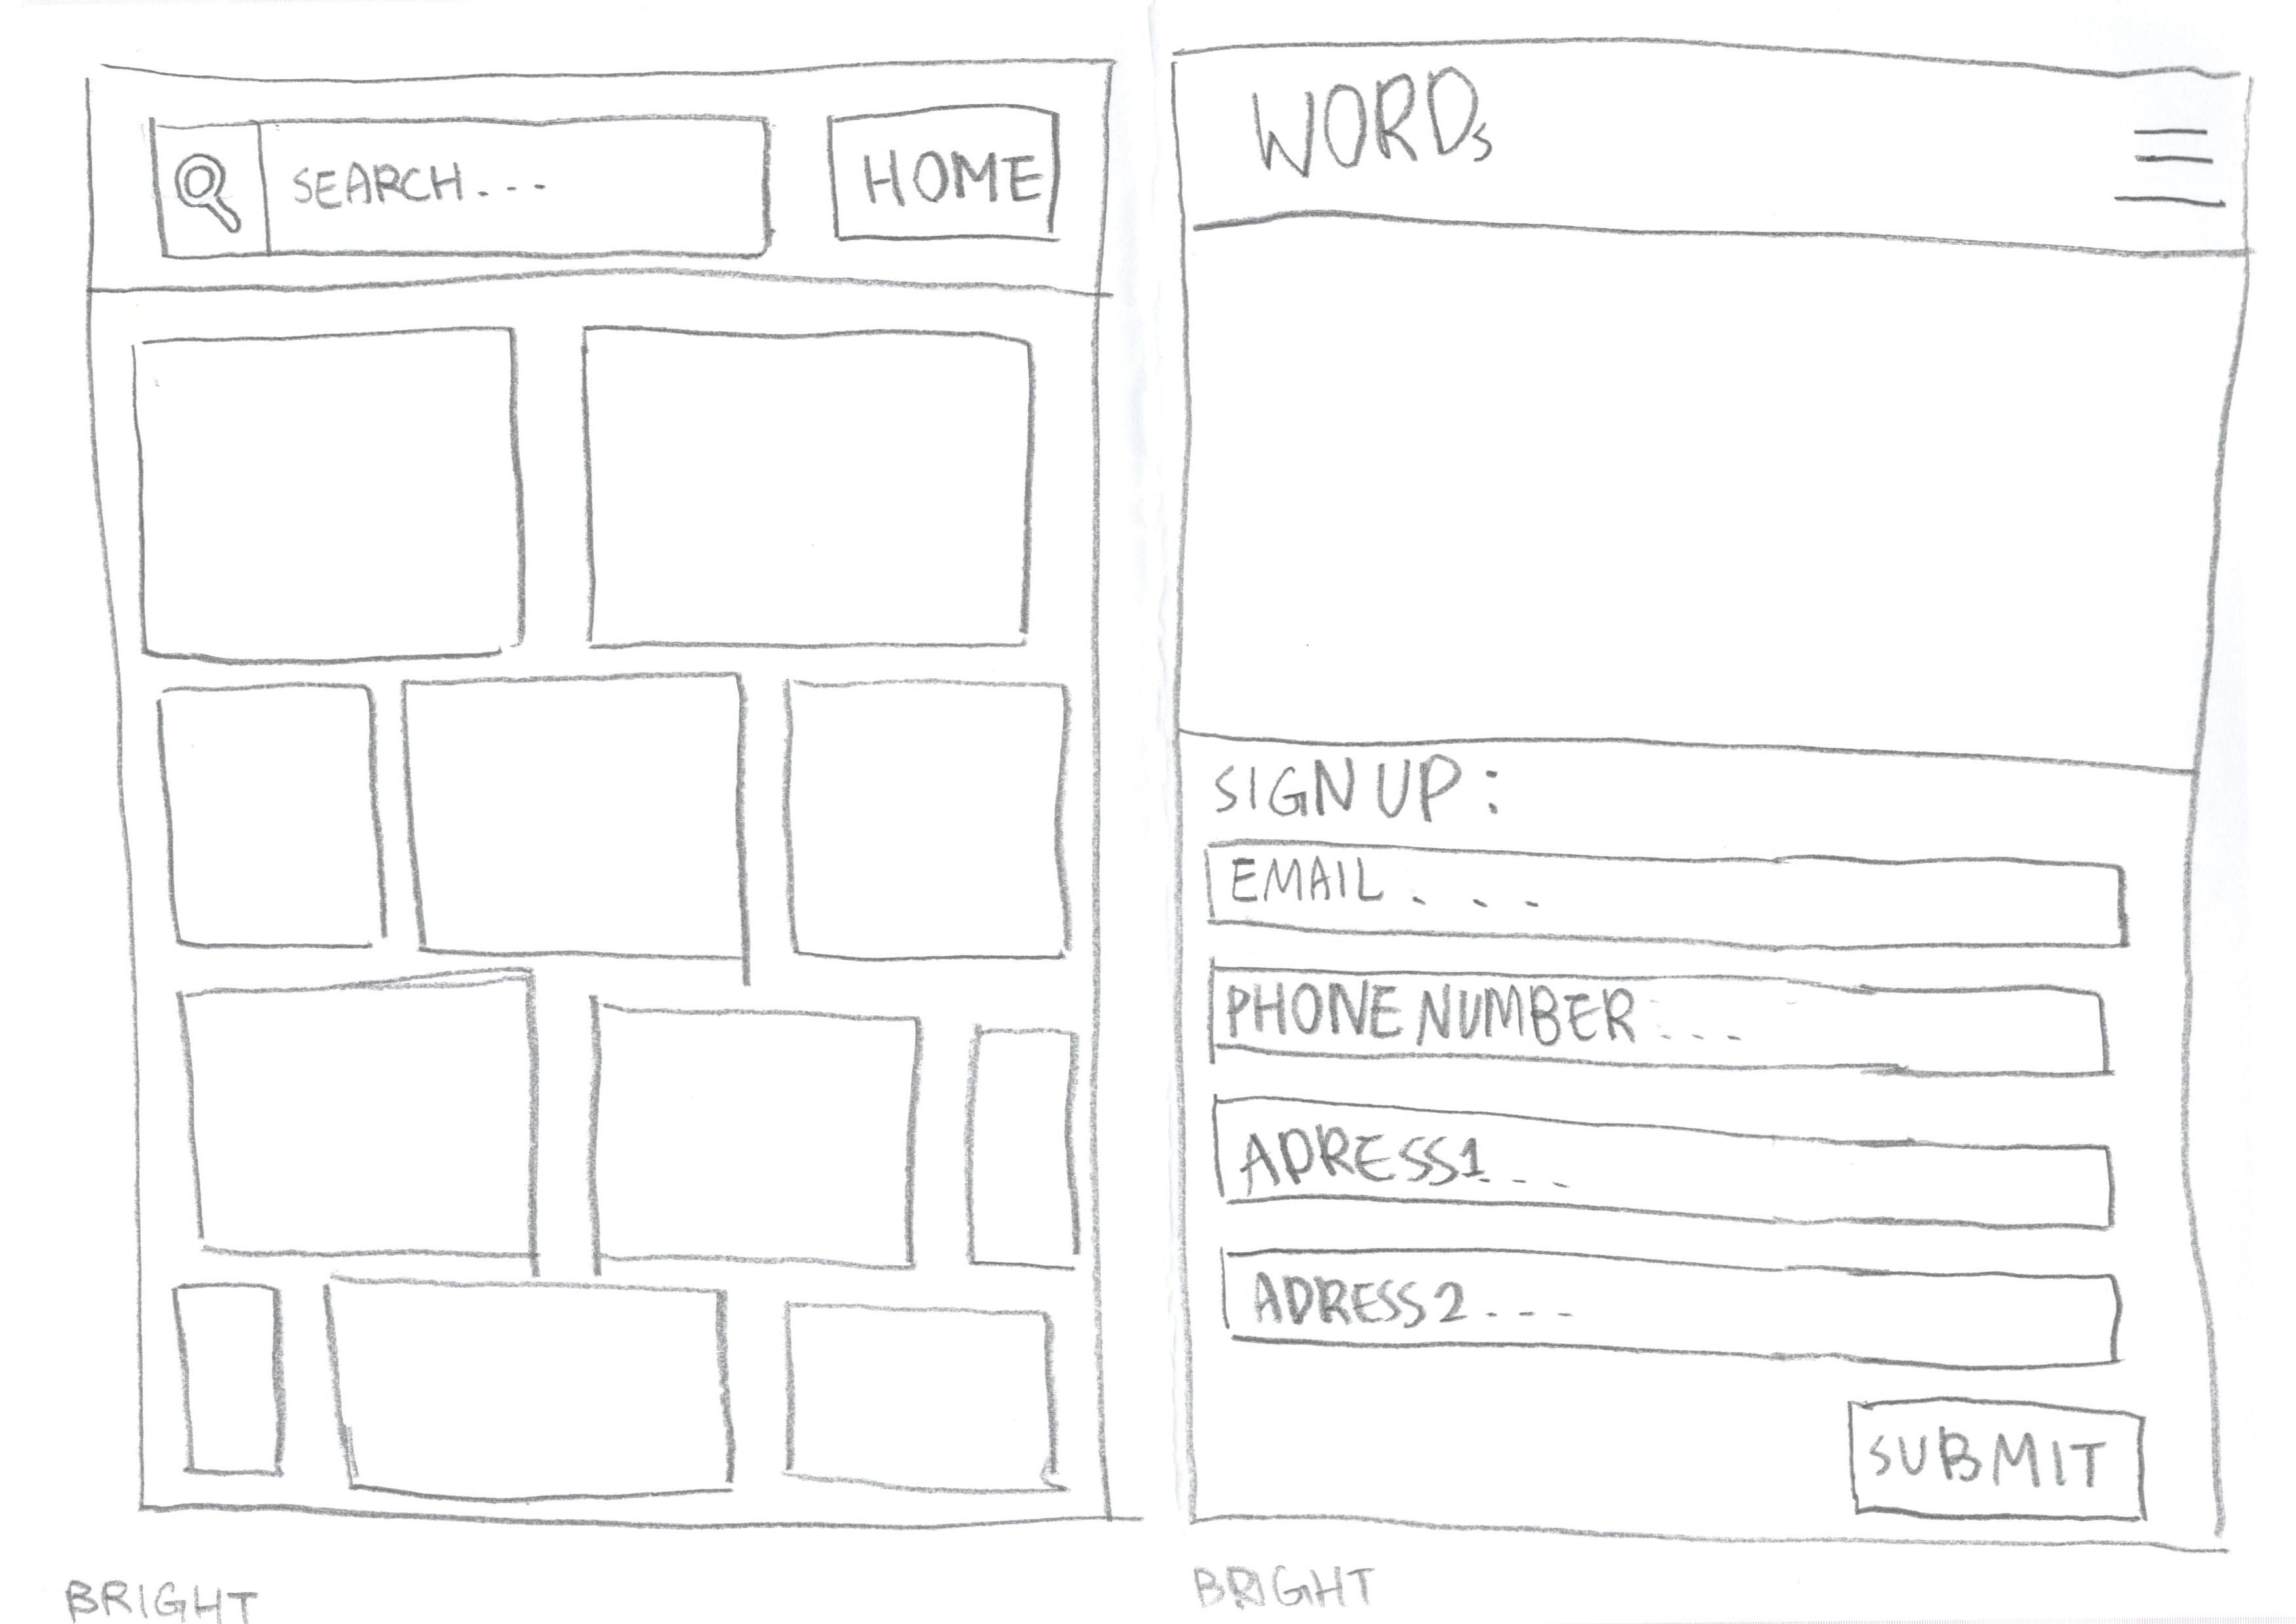 SEARCH...
HOME
BRIGHT
WORDs
SIGN UP:
EMAIL...
PHONE NUMBER...
ADRESS1...
ADRESS2...
SUBMIT
BRIGHT